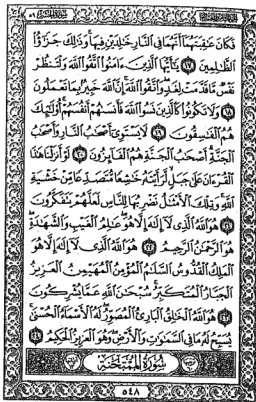 فَكَانَ عَٰقِبَتَهُمَآ أَنَّهُمَا فِى ٱلنَّارِ خَٰلِدَيْنِ فِيهَا وَذَٰلِكَ جَزَٰٓؤُا۟
ٱلظَّٰلِمِينَ ١٧ يَٰٓأَيُّهَا ٱلَّذِينَ ءَامَنُوا۟ ٱتَّقُوا۟ ٱللَّهَ وَلْتَنظُرْ
نَفْسٌ مَّا قَدَّمَتْ لِغَدٍ وَٱتَّقُوا۟ ٱللَّهَ إِنَّ ٱللَّهَ خَبِيرٌۢ بِمَا تَعْمَلُونَ
١٨ وَلَا تَكُونُوا۟ كَٱلَّذِينَ نَسُوا۟ ٱللَّهَ فَأَنسَىٰهُمْ أَنفُسَهُمْ أُو۟لَٰٓئِكَ
هُمُ ٱلْفَٰسِقُونَ ١٩ لَا يَسْتَوِىٓ أَصْحَٰبُ ٱلنَّارِ وَأَصْحَٰبُ
ٱلْجَنَّةِ أَصْحَٰبُ ٱلْجَنَّةِ هُمُ ٱلْفَآئِزُونَ ٢٠ لَوْ أَنزَلْنَا هَٰذَا
ٱلْقُرْءَانَ عَلَىٰ جَبَلٍ لَّرَأَيْتَهُۥ خَٰشِعًا مُّتَصَدِّعًا مِّنْ خَشْيَةِ
ٱللَّهِ وَتِلْكَ ٱلْأَمْثَٰلُ نَضْرِبُهَا لِلنَّاسِ لَعَلَّهُمْ يَتَفَكَّرُونَ
٢١ هُوَ ٱللَّهُ ٱلَّذِى لَآ إِلَٰهَ إِلَّا هُوَ عَٰلِمُ ٱلْغَيْبِ وَٱلشَّهَٰدَةِ
هُوَ ٱلرَّحْمَٰنُ ٱلرَّحِيمُ ٢٢ هُوَ ٱللَّهُ ٱلَّذِى لَآ إِلَٰهَ إِلَّا هُوَ
ٱلْمَلِكُ ٱلْقُدُّوسُ ٱلسَّلَٰمُ ٱلْمُؤْمِنُ ٱلْمُهَيْمِنُ ٱلْعَزِيزُ
ٱلْجَبَّارُ ٱلْمُتَكَبِّرُ سُبْحَٰنَ ٱللَّهِ عَمَّا يُشْرِكُونَ
٢٣ هُوَ ٱللَّهُ ٱلْخَٰلِقُ ٱلْبَارِئُ ٱلْمُصَوِّرُ لَهُ ٱلْأَسْمَآءُ ٱلْحُسْنَىٰ
يُسَبِّحُ لَهُۥ مَا فِى ٱلسَّمَٰوَٰتِ وَٱلْأَرْضِ وَهُوَ ٱلْعَزِيزُ ٱلْحَكِيمُ ٢٤
سُورَةُ ٱلْمُمْتَحَنَةِ
٥٤٨